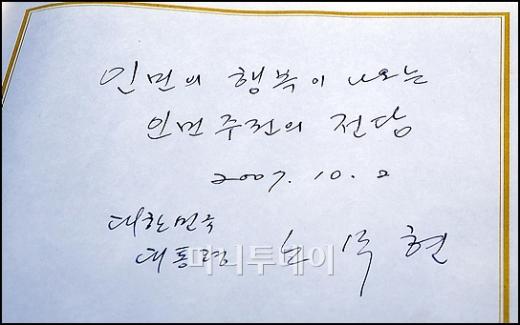 인민의 행복이 나오는
인민 주권의 전당
2007. 10. 2
대한민국
대통령 노무현
머니투데이